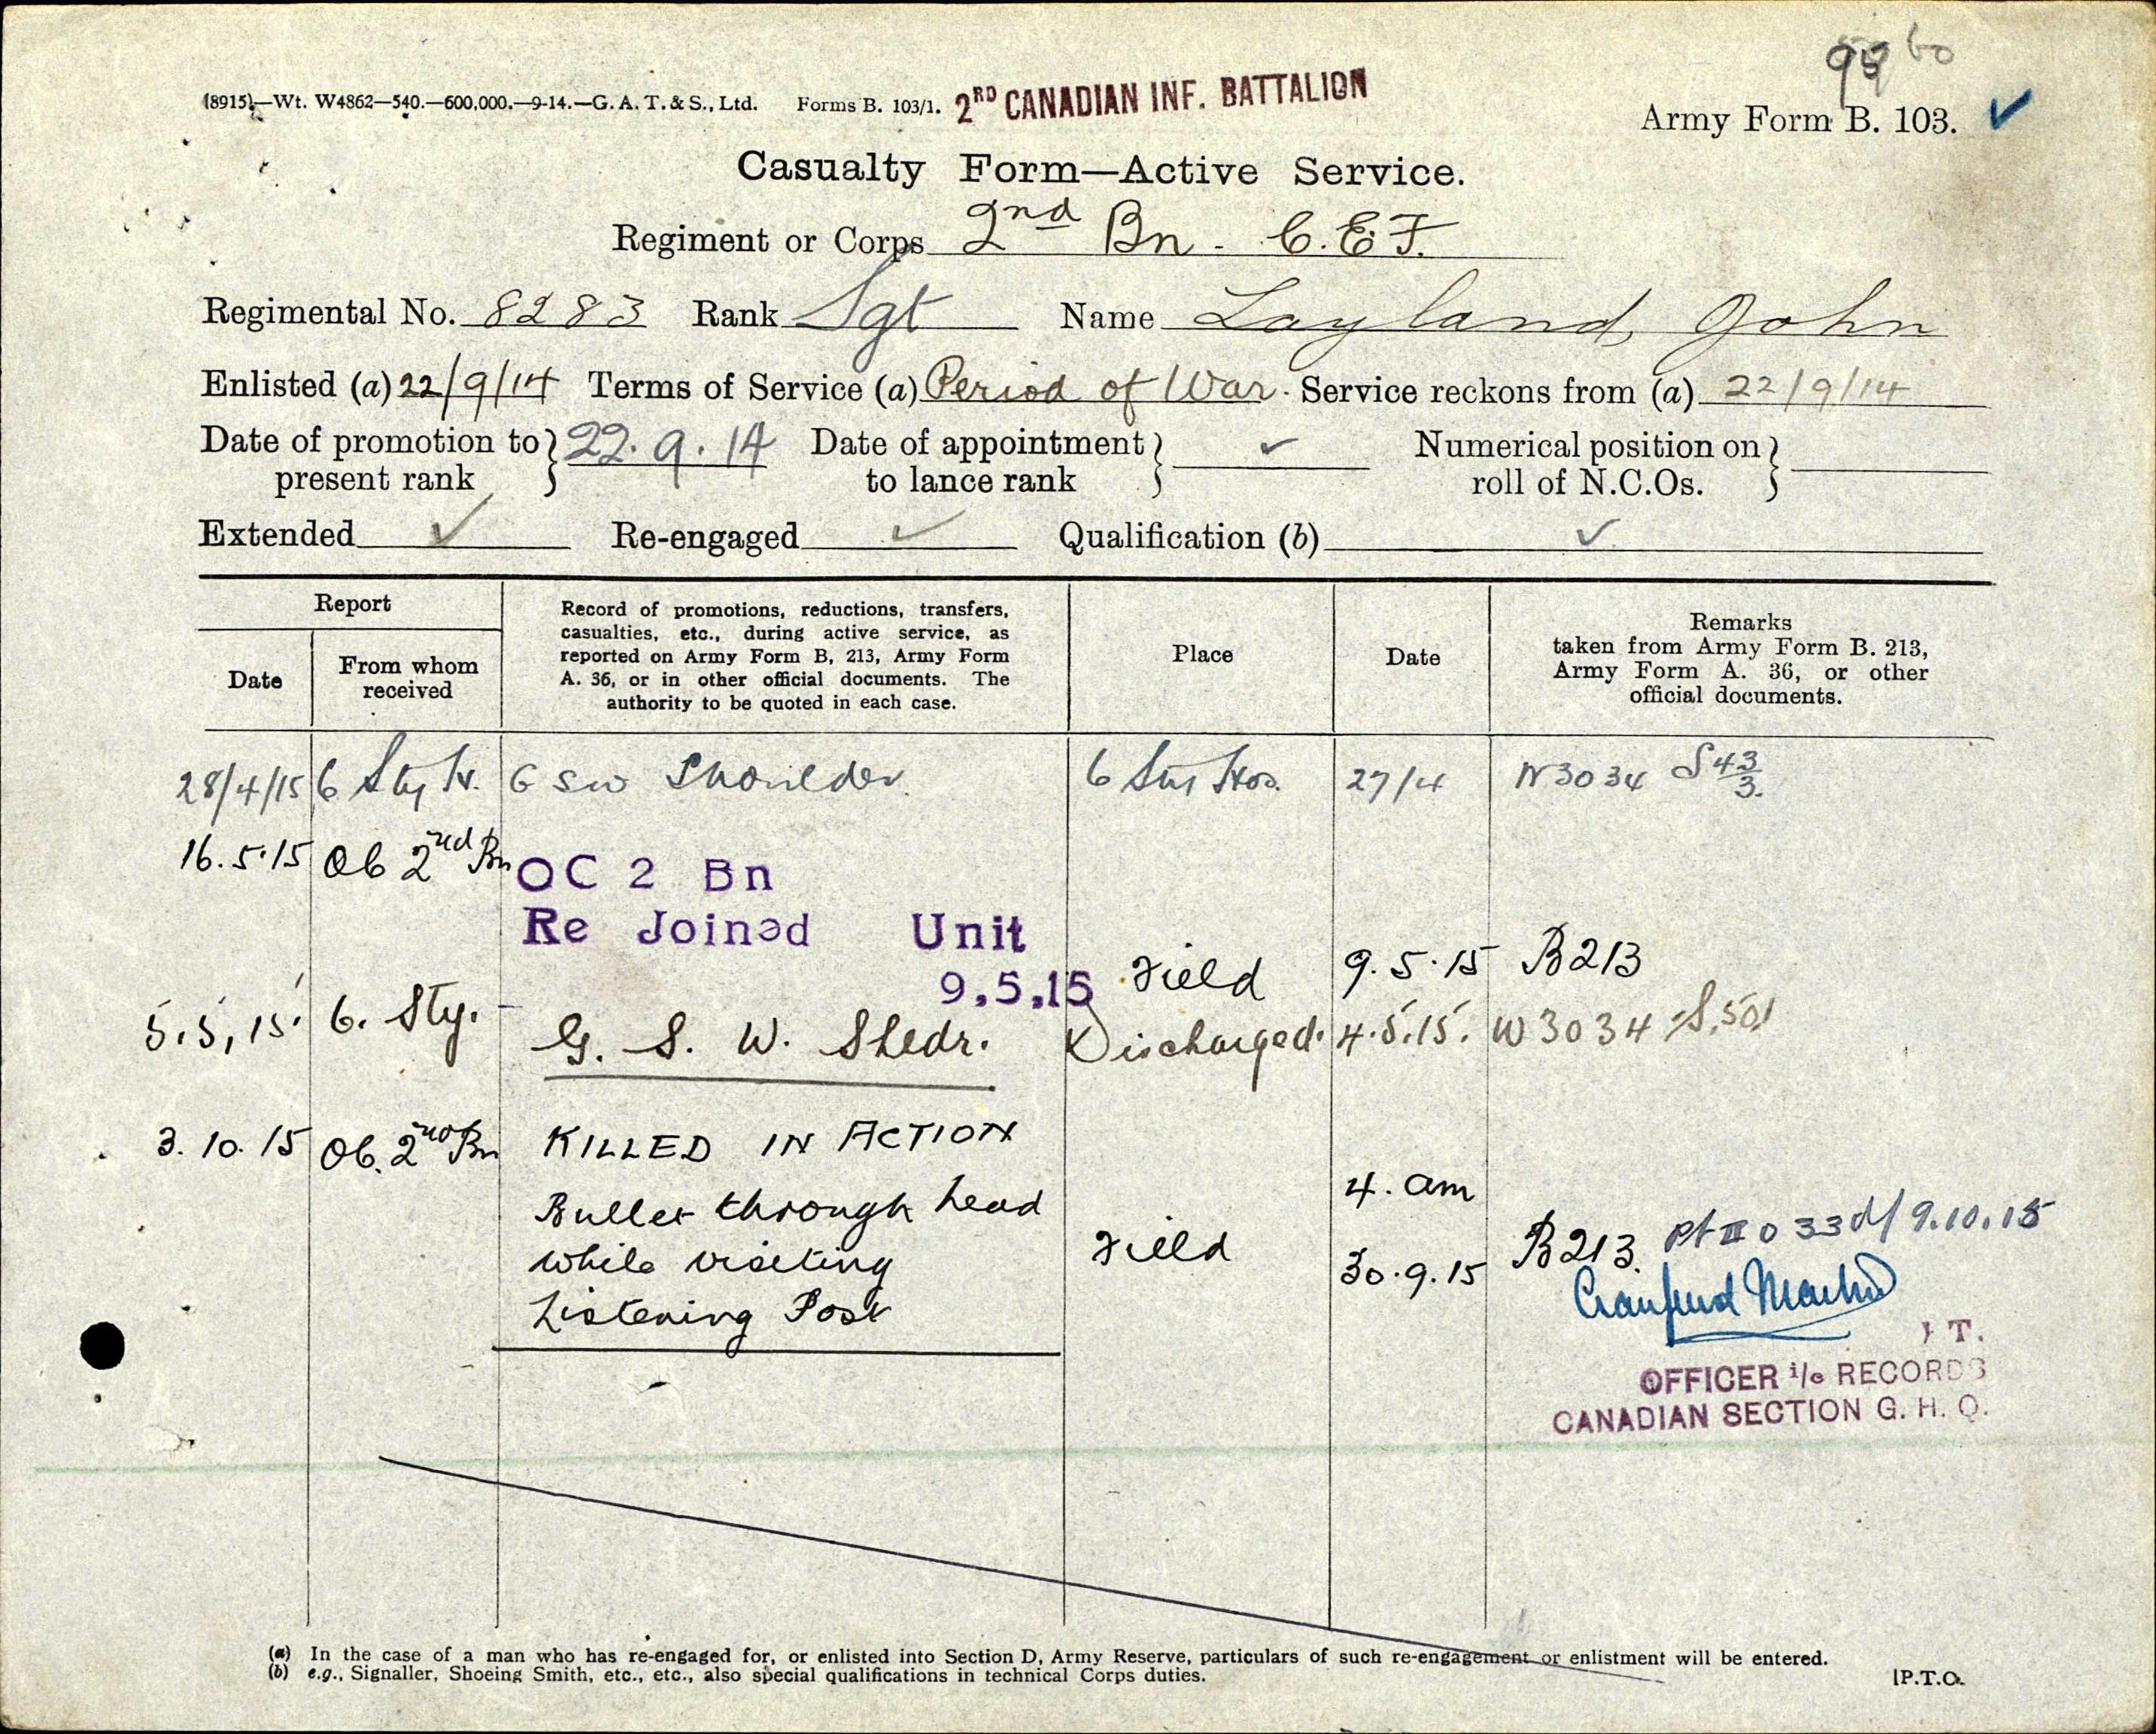 99 60
(8915)—Wt. W4862—540.—600,000.—9-14.—G. A. T. & S., Ltd. Forms B. 103/1. 2RD CANADIAN INF. BATTALION
Army Form B. 103.
Casualty Form—Active Service.
Regiment or Corps 2nd Bn. C.E.F.
Regimental No. 8283 Rank Sgt Name Layland, John
Enlisted (a) 22/9/14 Terms of Service (a) Period of War. Service reckons from (a) 22/9/14
Date of promotion to present rank } 22.9.14 Date of appointment to lance rank } ✓ Numerical position on roll of N.C.Os. }
Extended ✓ Re-engaged ✓ Qualification (b) ✓
Report
Date
From whom received
Record of promotions, reductions, transfers,
casualties, etc., during active service, as
reported on Army Form B, 213, Army Form
A. 36, or in other official documents. The
authority to be quoted in each case.
Place
Date
Remarks
taken from Army Form B. 213,
Army Form A. 36, or other
official documents.
28/4/15 6 Sty H. G SW Shoulder. 6 Sty Hos. 27/4 W3034 S 43/3.
16.5.15 OC 2nd Bn OC 2 Bn
Re Joined Unit
9.5.15 Field 9.5.15 B213
5.5,15. 6. Sty. - G. S. W. Shldr. Discharged. 4.5.15. W3034 S.50/
3.10.15 OC. 2nd Bn KILLED IN ACTION
Bullet through head
while visiting
Listening Post
Field
4. am
30.9.15
B213. Pt II O 33 d/ 9.10.15
LT.
OFFICER i/c RECORDS
CANADIAN SECTION G. H. Q.
(a) In the case of a man who has re-engaged for, or enlisted into Section D, Army Reserve, particulars of such re-engagement or enlistment will be entered.
(b) e.g., Signaller, Shoeing Smith, etc., etc., also special qualifications in technical Corps duties.
[P.T.O.